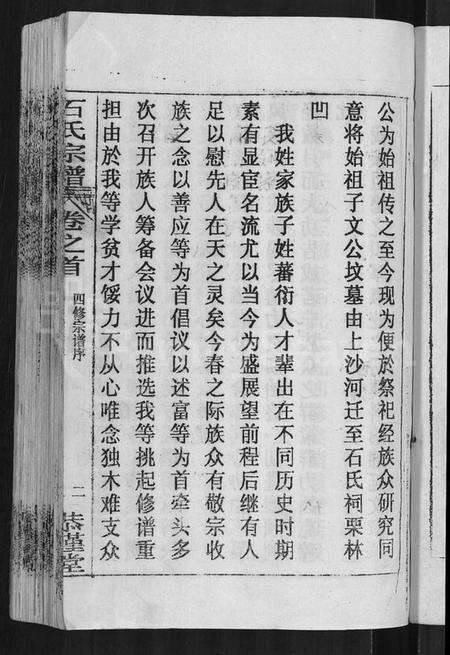 公为始祖传之至今现为便於祭祀经族众研究同
意将始祖子文公坟墓由上沙河迁至石氏祠栗林
凹
我姓家族子姓蕃衍人才辈出在不同历史时期
素有显宦名流尤以当今为盛展望前程后继有人
足以慰先人在天之灵矣今春之际族众有敬宗收
族之念以善应等为首倡议以述富等为首牵头多
次召开族人筹备会议进而推选我等挑起修谱重
担由於我等学贫才馁力不从心唯念独木难支众
石氏宗谱 卷之首
四修宗谱序
二
恭谨堂